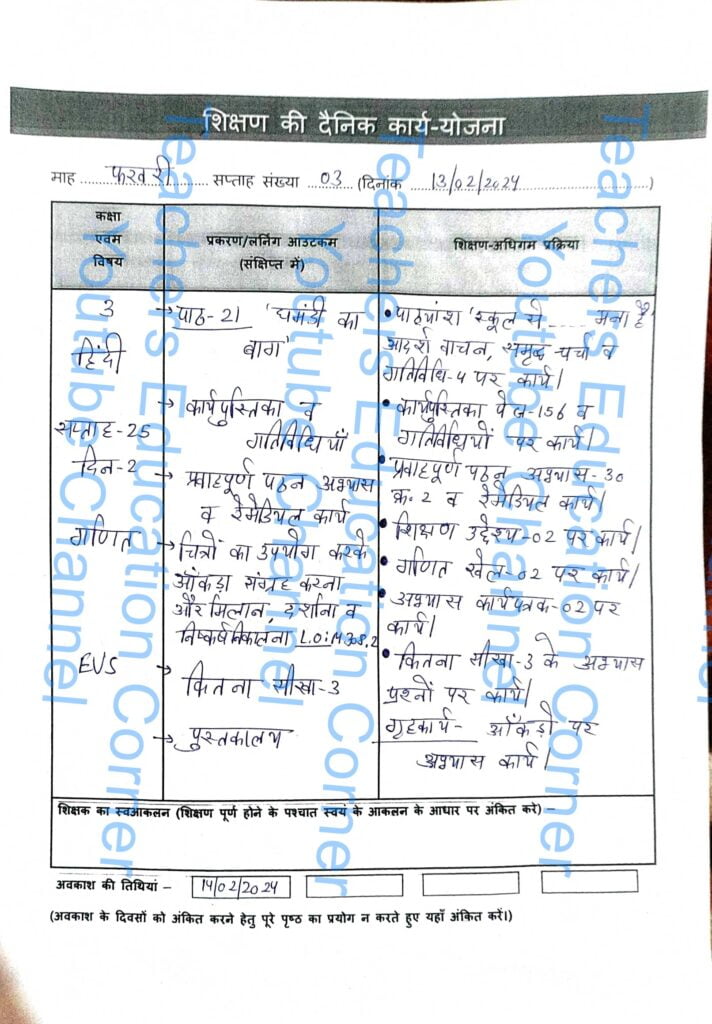 शिक्षण की दैनिक कार्य-योजना
माह फरवरी सप्ताह संख्या 03 (दिनांक 13/02/2024)
कक्षा
एवम
विषय
प्रकरण/लर्निग आउटकम
(संक्षिप्त में)
शिक्षण-अधिगम प्रक्रिया
3
हिंदी
सप्ताह-25
दिन-2
गणित
EVS
→ पाठ-21 'घमंडी का
बाग'
→ कार्यपुस्तिका व
गतिविधियाँ
→ प्रवाहपूर्ण पठन अभ्यास
व रेमेडियल कार्य
→ चित्रों का उपयोग करके
आँकड़ा संग्रह करना
और मिलान, दर्शाना व
निष्कर्ष निकालना L.O:M308.2
→ कितना सीखा-3
→ पुस्तकालय
• पाठ्यांश 'स्कूल से .... मना है'
आदर्श वाचन, समृद्ध चर्चा व
गतिविधि-4 पर कार्य।
• कार्यपुस्तिका पेज-156 व
गतिविधियों पर कार्य।
• प्रवाहपूर्ण पठन अभ्यास-30
क्र. 2 व रेमेडियल कार्य।
• शिक्षण उद्देश्य-02 पर कार्य।
• गणित खेल-02 पर कार्य।
• अभ्यास कार्यपत्रक-02 पर
कार्य।
• कितना सीखा-3 के अभ्यास
प्रश्नों पर कार्य।
गृहकार्य- आँकड़ो पर
अभ्यास कार्य।
शिक्षक का स्वआकलन (शिक्षण पूर्ण होने के पश्चात स्वयं के आकलन के आधार पर अंकित करे) –
अवकाश की तिथियां – 14/02/2024
(अवकाश के दिवसों को अंकित करने हेतु पूरे पृष्ठ का प्रयोग न करते हुए यहाँ अंकित करें।)
Teachers Education Corner
Youtube Channel
Teachers Education Corner
Youtube Channel
Teachers Education Corner
Youtube Channel